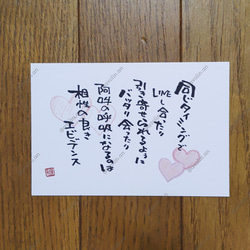 同じタイミングで
LINEし合だり
引き寄せられるように
バッタリ会ったり
阿吽の呼吸になるは
相性の良き
エビデンス